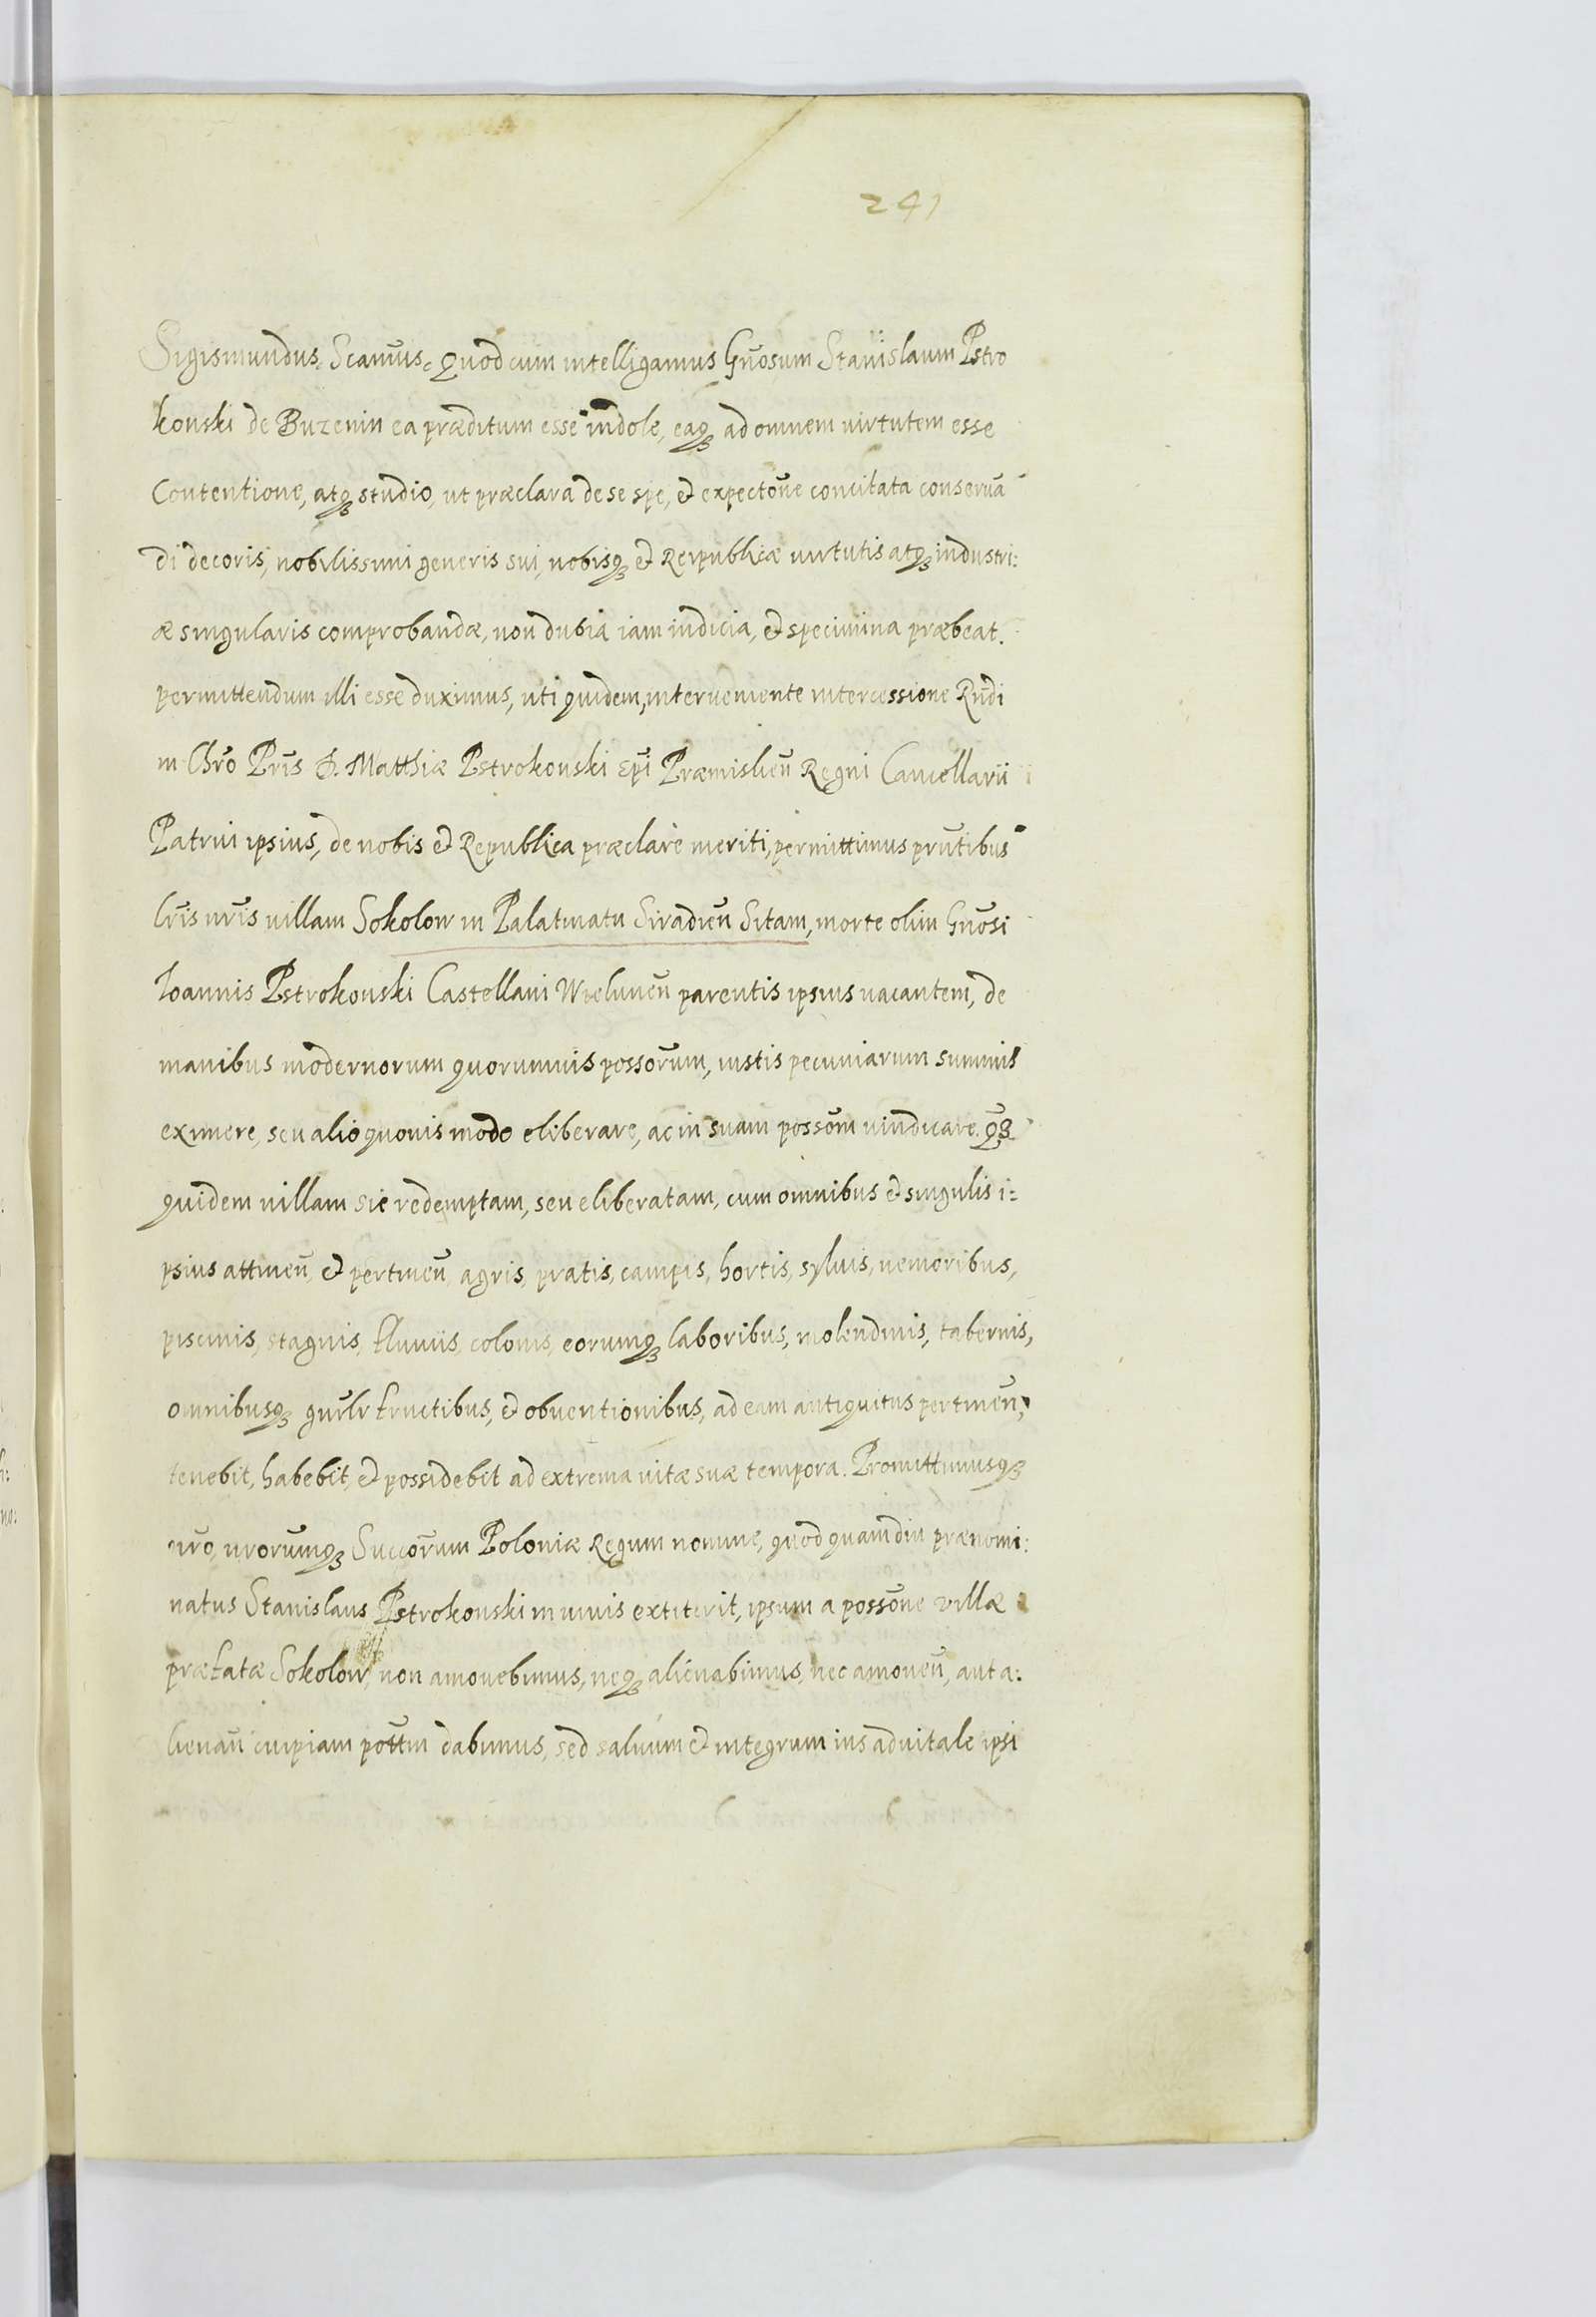 241
Sigismundus. Scimus. Quod cum intelligamus Gn̄osum Stanislaum Pstro
konski de Buzenin ea præditum esse indole, eaq3 ad omnem virtutem esse
Contentione, atq3 studio, ut præclara de se spe, et expecto̅ne concitata conserua̅
di decoris, nobilissimi generis sui, nobisq3 et Reipublicæ virtutis atq3 industri:
æ singularis comprobandæ, non dubia iam indicia, et specimina præbeat.
permittendum illi esse duximus, uti quidem, interueniente intercessione Rn̄di
in Chr̄o Pr̄is D. Matthiæ Pstrokonski Ep̄i Præmislien̄ Regni Cancellarii
Patrui ipsius, de nobis et Republica præclarè meriti, permittimus prn̄tibus
Lr̄is nr̄is villam Sokolow in Palatinatu Siradien̄ Sitam, morte olim Gn̄osi
Ioannis Pstrokonski Castellani Wielunen̄ parentis ipsius vacantem, de
manibus modernorum quorumuis posso̅rum, iustis pecuniarum summis
eximere, seu alio quouis modo eliberare, ac in suam posso̅m vindicare. Q̄3
quidem villam sic redemptam, seu eliberatam, cum omnibus et singulis i:
psius attinen̄ et pertinen̄ agris, pratis, campis, hortis, syluis, nemoribus,
piscinis, stagnis, fluuiis, colonis, eorumq3 laboribus, molendinis, tabernis,
omnibusq3 gn̄lr fructibus, et obuentionibus, ad eam antiquitus pertinen̄,
tenebit, habebit, et possidebit ad extrema vitæ suæ tempora. Promittimusq3
nr̄o, nrorūmq3 Succo̅rum Poloniæ Regum nomine, quod quamdiu prænomi:
natus Stanislaus Pstrokonski in viuis extiterit, ipsum a posso̅ne villæ
præfatæ Sokolow, non amouebimus, neq3 alienabimus, nec amouen̄, aut a:
lienan̄ cuipiam pot̄tm dabimus, sed saluum et integrum ius aduitale ipsi